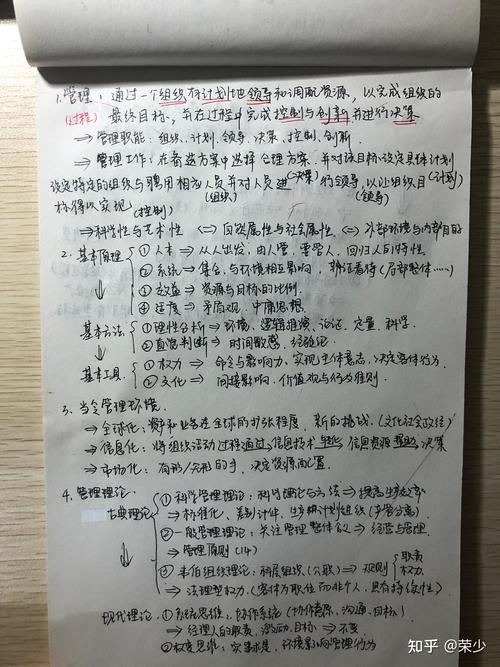 1.管理：通过一个组织有计划地领导和调配资源，以完成组织的
(过程) 最终目标，并在过程中完成控制与创新并进行决策
⇒ 管理职能：组织、计划、领导、决策、控制、创新.
⇒ 管理工作：在备选方案中选择合理方案，并对该目标设定具体计划
(决策) (计划)
设定特定的组织与聘用相应人员并对人员进行领导，以让组织目
(组织) (领导)
标得以实现 (控制)
⇒ 科学性与艺术性 ⇔ 自然属性与社会属性 ⇔ 外部环境与内部目的
2. 基本原理 ① 人本 ⇒ 从人出发，由人管，要管人，回归人的特性
② 系统 ⇒ 集合，与环境相互影响，辩证看待(局部整体……)
③ 效益 ⇒ 资源与目标的比例.
④ 适度 ⇒ 矛盾观，中庸思想.
基本方法 ① 理性分析 ⇒ 环境、逻辑推演、论证、定量、科学
② 直觉判断 ⇒ 时间敏感、经验论
基本工具 ① 权力 ⇒ 命令与影响力、实现主体意志、决定客体行为.
② 文化 ⇒ 间接影响、价值观与行为准则.
3. 当今管理环境.
⇒ 全球化：资本和业务在全球的扩张程度、新的挑战.(文化社会政经)
⇒ 信息化：将组织活动过程通过信息技术 信息资源 决策
⇒ 市场化：有形/无形的手，决定资源配置.
4. 管理理论.
古典理论 ① 科学管理理论：科学理论与方法 ⇒ 提高生产效率
⇒ 标准化、差别计件、 计划组织
② 一般管理理论：关注管理整体 ⇒ 经营与管理.
⇒ 管理原则 (14)
③ 韦伯组织理论：科层组织(公职) ⇒ 规则 职责
权力
⇒ 法理型权力.(客体为职位而非个人，具有 )
现代理论. ① 系统思维：协作系统 (协作意愿、沟通、目标)
⇒ 经理人的职责，激励、目标.
② 权变思维：实事求是，环境影响管理行为
知乎 @荣少